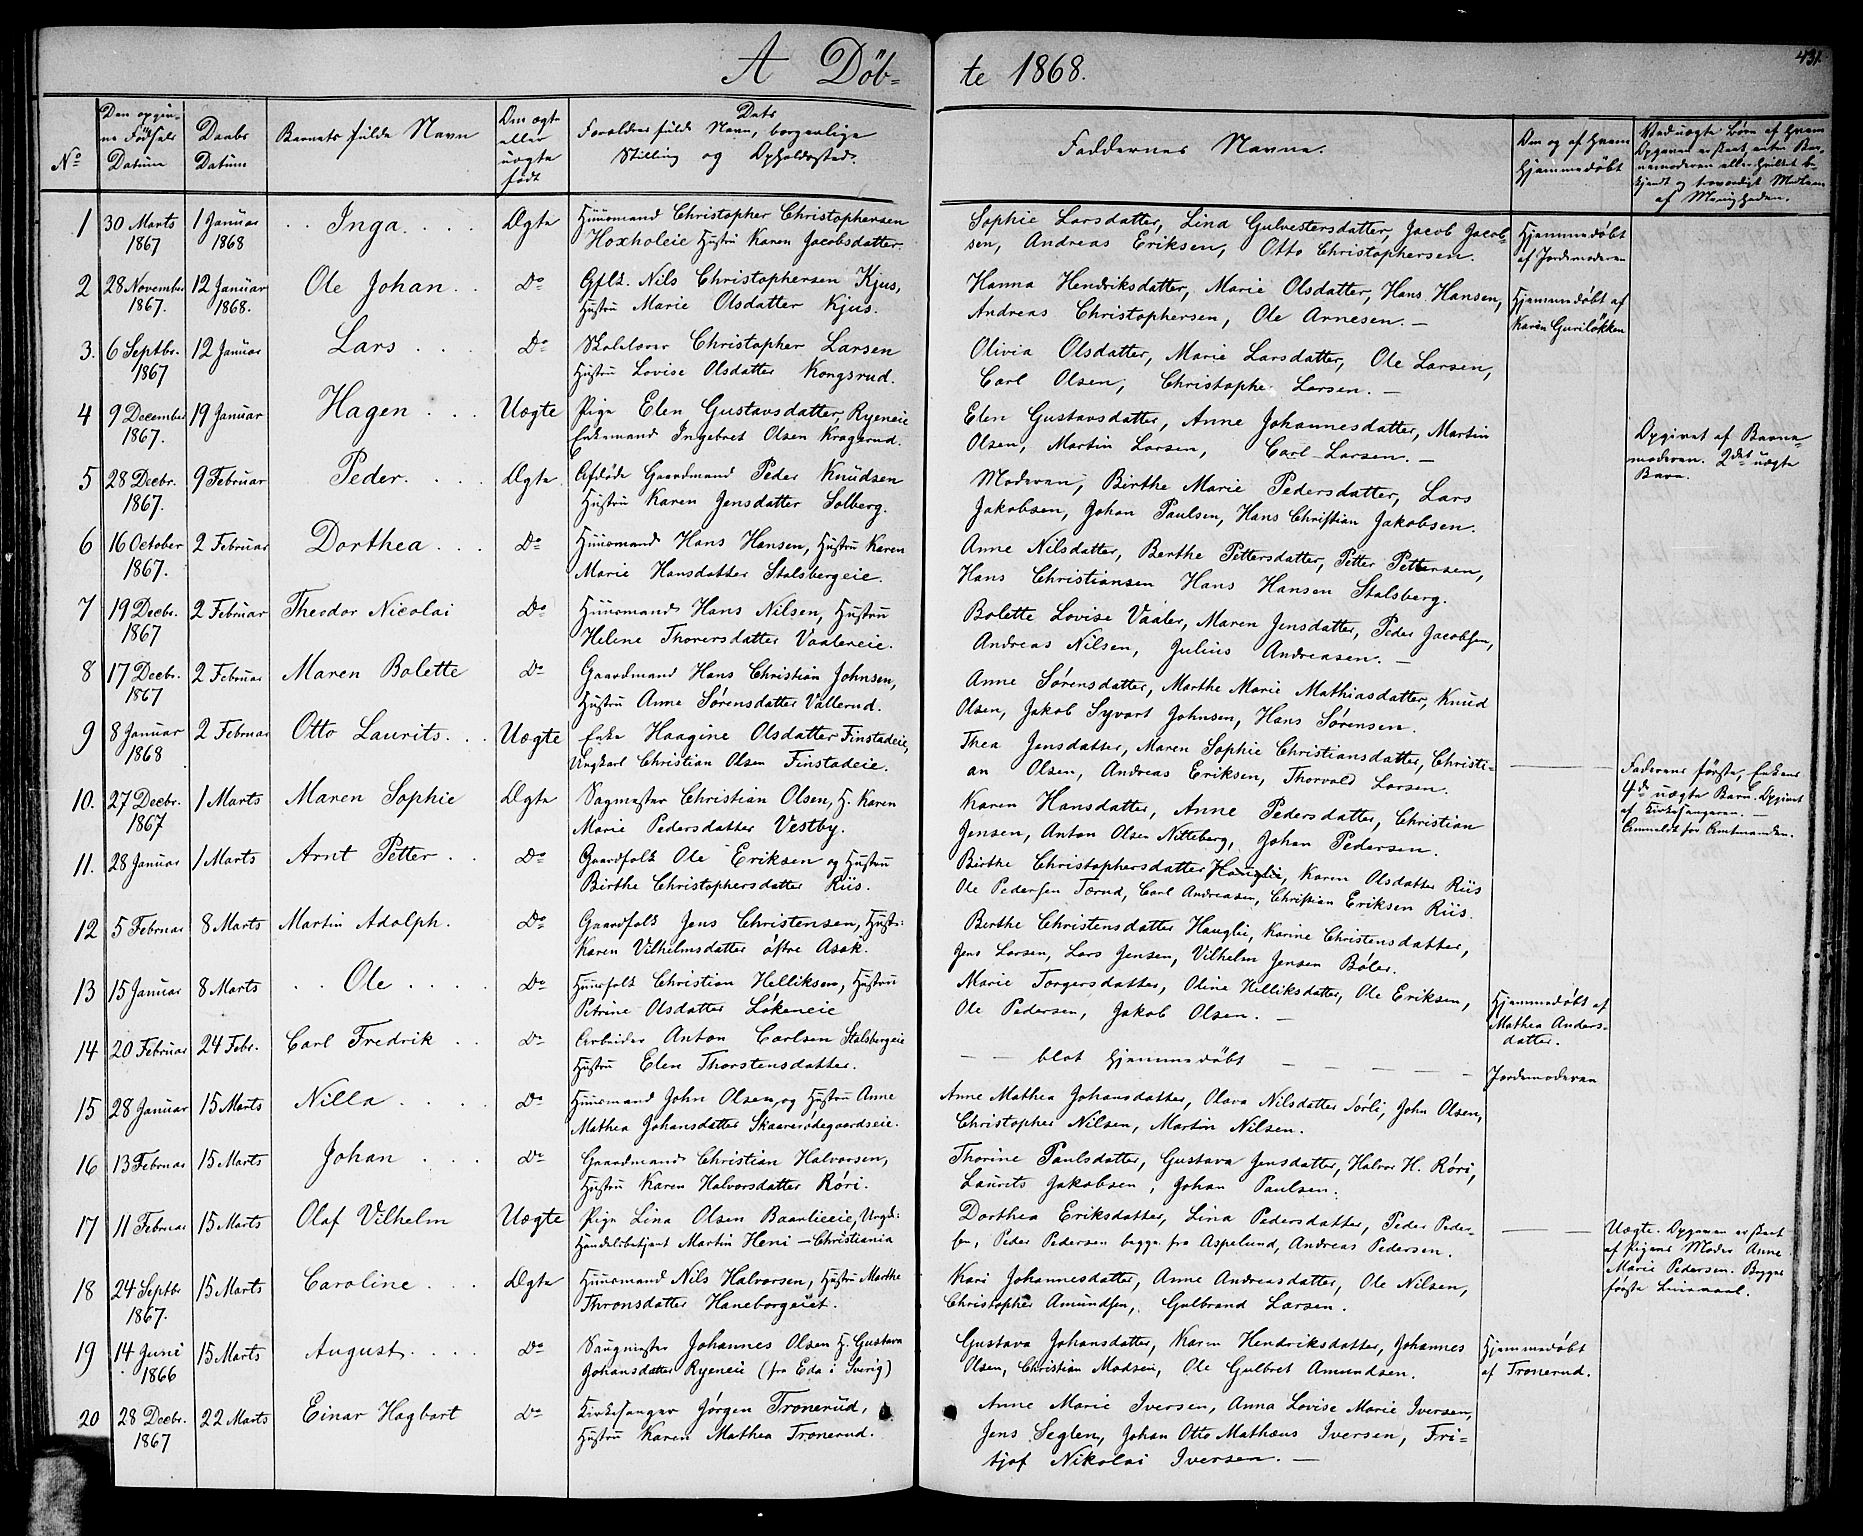 A Döb-
te 1868.
431.
No
Den opgiv-
ne Födsels
Datum
Daabs
Datum
Barnets fulde Navn
Om ægte
eller
uægte
født
Dets
Forældres fulde Navn, borgerlige
Stilling og Opholdssted.
Faddernes Navne.
Om og af Hvem
Hjemmedöbt
Ved uægte Börn af Hvem
Opgaven er skeet, enten Bar-
nemoderen eller hvilket be-
kjendt og troværdigt Medlem
af Menigheden.
1 30 Marts 1 Januar Inga. Ægte Huusmand Christopher Christophersen Sophie Larsdatter, Lina Gulvestersdatter, Jacob Jacob- Hjemmedöbt
1867 1868 Hoxholeie Hustru Karen Jacobsdatter. sen, Andreas Eriksen, Otto Christophersen. af Jordemoderen
2 28 November 12 Januar Ole Johan. Do Gflk. Nils Christophersen Kjus, Hanna Hendriksdatter, Marie Olsdatter, Hans Hansen, Hjemmedöbt af
1867. 1868. Hustru Marie Olsdatter Kjus. Andreas Christophersen, Ole Arnesen. — Karen Guriløkken
3. 6 Septbr. 12 Januar Lars Do Skolelærer Christopher Larsen Olivia Olsdatter, Marie Larsdatter, Ole Larsen,
1867 Hustru Lovise Olsdatter Kongsrud. Carl Olsen, Christopher Larsen. —
4 9 December 19 Januar Hagen Uægte Pige Elen Gustavsdatter Ryeneie Elen Gustavsdatter, Anne Johannesdatter, Martin Opgivet af Barne-
1867. Enkemand Ingebret Olsen Kragsrud. Olsen, Martin Larsen, Carl Larsen. — moderen. 2det uægte
Barn.
5 28 Decbr. 9 Februar Peder. Ægte Afdöde Gaardmand Peder Knudsen Moderen, Birthe Marie Pedersdatter, Lars
1867. Hustru Karen Jensdatter Solberg. Jakobsen, Johan Paulsen, Hans Christian Jakobsen.
6 16 October 2 Februar Dorthea Do Huusmand Hans Hansen, Hustru Karen Anne Nilsdatter, Berthe Pettersdatter, Petter Pettersen,
1867. Marie Hansdatter Stalsbergeie. Hans Christiansen Hans Hansen Stalsberg.
7 19 Decbr. 2 Februar Theodor Nicolai Do Huusmand Hans Nilsen, Hustru Bolette Lovise Vaaler, Maren Jensdatter, Peder Jacobsen,
1867 Helene Thorersdatter Vaalereie. Andreas Nilsen, Julius Andreasen. —
8 17 Decbr. 2 Februar Maren Bolette Do Gaardmand Hans Christian Johnsen, Anne Sørensdatter, Marthe Marie Mathiasdatter, Knud
1867 Hustru Anne Sørensdatter Vallerud. Olsen, Jakob Syvart Johnsen, Hans Sørensen.
9 8 Januar 2 Februar Otto Laurits. Uægte Enke Haagine Olsdatter Finstadeie, Thea Jensdatter, Maren Sophie Christiansdatter, Christi- Faderens første, Enkens
1868 Ungkarl Christian Olsen Finstadeie. an Olsen, Andreas Eriksen, Thorvald Larsen. 4de uægte Barn. Opgivet
af Kirkesangeren. —
Anmeldt for Amtmanden.
10. 27 Decbr. 1 Marts Maren Sophie Ægte Sagmester Christian Olsen, H. Karen Karen Hansdatter, Anne Pedersdatter, Christian
1867 Marie Pedersdatter Vestby. Jensen, Anton Olsen Nitteberg, Johan Pedersen.
11. 28 Januar 1 Marts Arnt Petter Do Gaardfolk Ole Eriksen og Hustru Birthe Christophersdatter Hauglie, Karen Olsdatter Riis
Birthe Christophersdatter Riis. Ole Pedersen Tørud, Carl Andreasen, Christian Eriksen Riis.
12 5 Februar 8 Marts Martin Adolph. Do Gaardfolk Jens Christensen, Hustr: Berthe Christensdatter Hauglie, Karine Christensdatter,
Karen Vilhelmsdatter östre Asak. Jens Larsen, Lars Jensen, Vilhelm Jensen Böler.
13 15 Januar 8 Marts Ole Do Huusfolk Christian Helliksen, Hustru Marie Torgersdatter, Oline Helliksdatter, Ole Eriksen, Hjemmedöbt af
Petrine Olsdatter Lökeneie Ole Pedersen, Jakob Olsen. — Mathea Anders-
datter.
14 20 Februar 24 Febr. Carl Fredrik Do Arbeider Anton Carlsen Stalsbergeie — — blot hjemmedöbt — — — Jordemoderen
Hustru Elen Thorstensdatter.
15 28 Januar 15 Marts Nilla Do Huusmand John Olsen, og Hustru Anne Anne Mathea Johansdatter, Olava Nilsdatter Sörli, John Olsen,
Mathea Johansdatter Skaaresödegaardseie. Christopher Nilsen, Martin Nilsen.
16 13 Februar 15 Marts Johan Do Gaardmand Christian Halvorsen, Thorine Paulsdatter, Gustava Jensdatter, Halvor H. Röri,
Hustru Karen Halvorsdatter Röri. Laurits Jakobsen, Johan Paulsen.
17 11 Februar 15 Marts Olaf Vilhelm Uægte Pige Lina Olsen Baarlieeie, Ungk: Dorthea Eriksdatter, Lina Pedersdatter, Peder Peder- Uægte. Opgaven er skeet
Handelsbetjent Martin Heni — Christiania sen, Peder Pedersen begge fra Aspelund, Andreas Pedersen. af Pigens Moder Anne
Marie Pedersen. Begges
første Leiermaal.
18 24 Septbr 15 Marts Caroline Ægte Huusmand Nils Halvorsen, Hustru Marthe Kari Johannesdatter, Anne Andreasdatter, Ole Nilsen,
1867. Thronsdatter Haneborgeiet. Christopher Amundsen, Gulbrand Larsen.
19 14 Juni 15 Marts August Do Saugmester Johannes Olsen H. Gustava Gustava Johansdatter, Karen Hendriksdatter, Johannes Hjemmedöbt
1866 Johansdatter Ryeneie (fra Eda i Sverig) Olsen, Christian Madsen, Ole Gulbret Amundsen. af Tronerud.
20 28 Decbr. 22 Marts Einar Hagbart Do Kirkesanger Jørgen Tronerud, Anne Marie Iversen, Anna Lovise Marie Iversen,
1867 Hustru Karen Mathea Tronerud. Jens Seglen, Johan Otto Mathæus Iversen, Fri-
tjof Nikolai Iversen. —